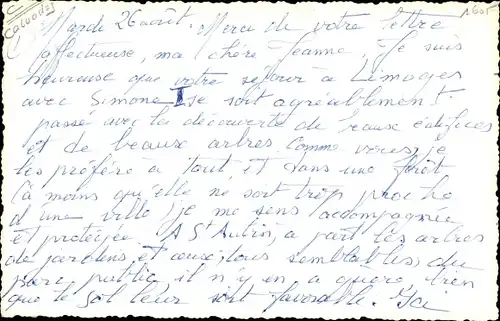 Calvados
1605
Mardi 26 août. Merci de votre lettre
affectueuse, ma chère Jeanne. Je suis
heureuse que votre séjour à Limoges
avec Simone I se soit agréablement
passé avec la découverte de beaux édifices
et de beaux arbres. Comme vous, je
les préfère à tout, et dans une forêt
(à moins qu'elle ne soit trop proche
d'une ville) je me sens accompagnée
et protégée. A St Aubin, à part les arbres
de jardins et ceux, tous semblables, du
parc public, il n'y en a guère, bien
que le sol leur soit favorable. Ici